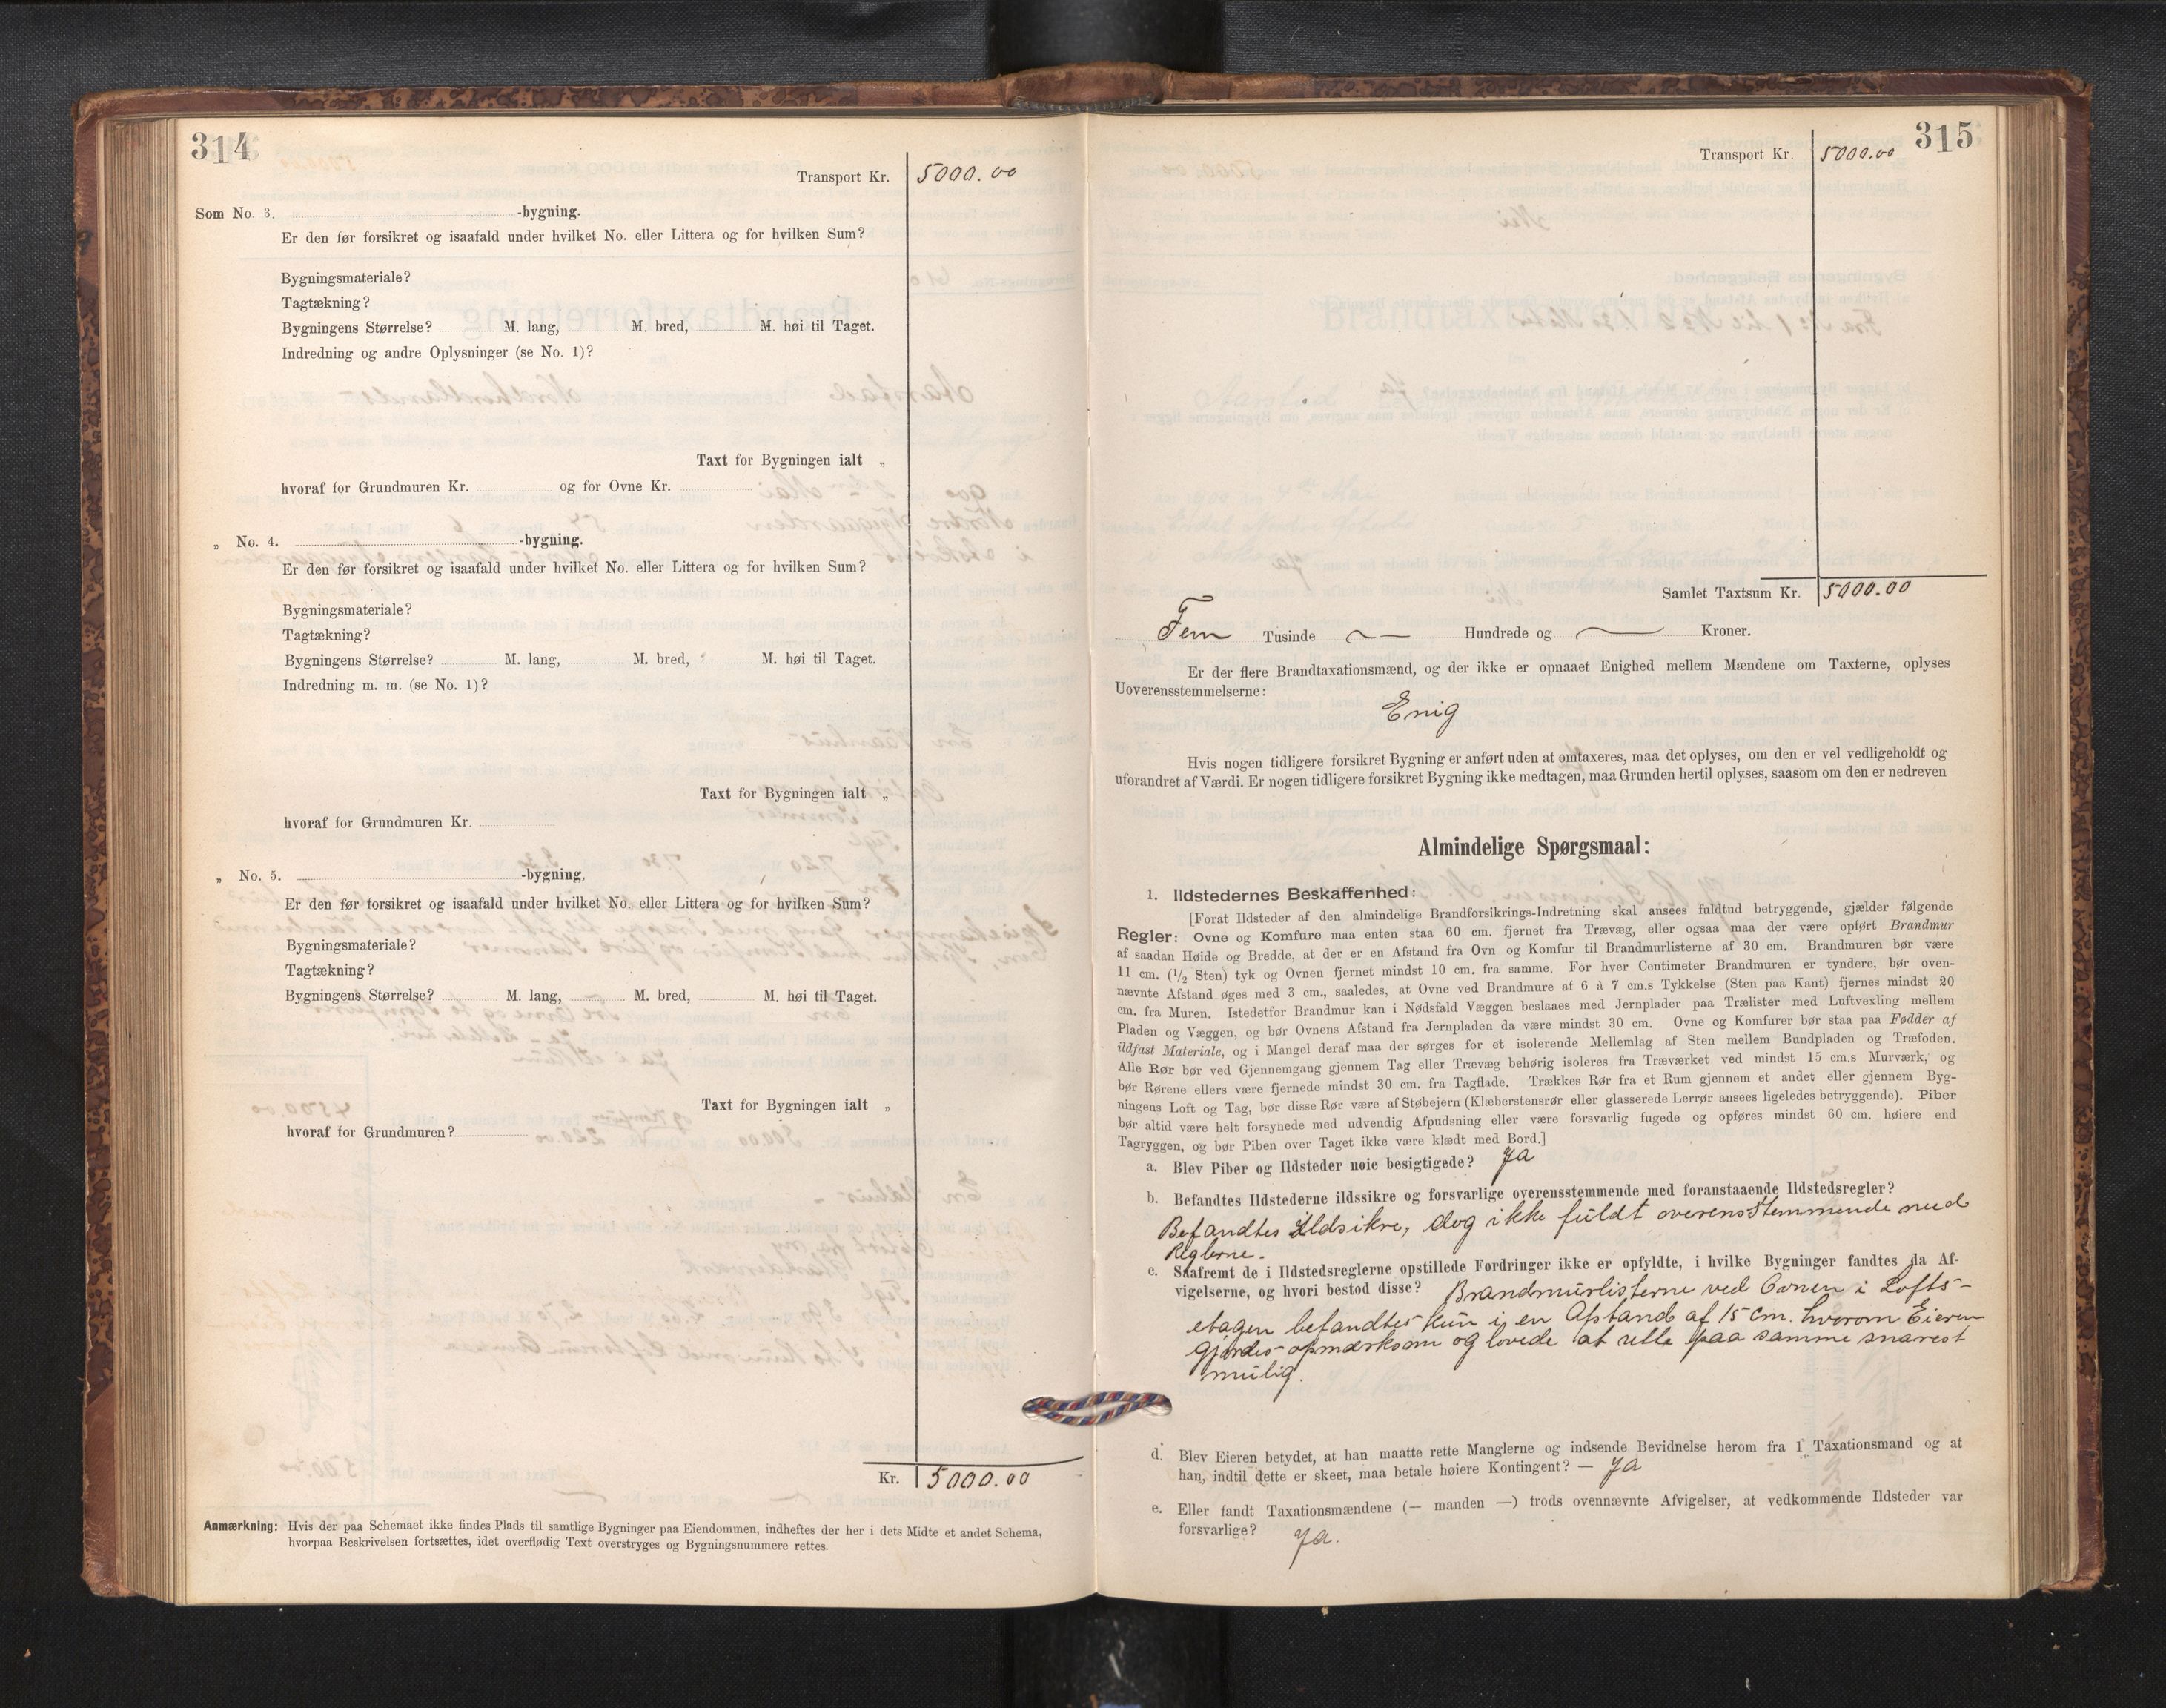 314
Transport Kr. 5000.00
Som No. 3. -bygning.
Er den før forsikret og isaafald under hvilket No. eller Littera og for hvilken Sum?
Bygningsmateriale?
Tagtækning?
Bygningens Størrelse? M. lang, M. bred, M. høi til Taget.
Indredning og andre Oplysninger (se No. 1)?
Taxt for Bygningen ialt „
hvoraf for Grundmuren Kr. og for Ovne Kr.
„ No. 4. -bygning.
Er den før forsikret og isaafald under hvilket No. eller Littera og for hvilken Sum?
Bygningsmateriale?
Tagtækning?
Bygningens Størrelse? M. lang, M. bred, M. høi til Taget.
Indredning m. m. (se No. 1)?
Taxt for Bygningen ialt „
hvoraf for Grundmuren Kr.
„ No. 5. -bygning,
Er den før forsikret og isaafald under hvilket No. eller Littera og for hvilken Sum?
Bygningsmateriale?
Tagtækning?
Bygningens Størrelse? M. lang, M. bred, M. høi til Taget.
Taxt for Bygningen ialt „
hvoraf for Grundmuren?
Kr. 5000.00
Anmærkning: Hvis der paa Schemaet ikke findes Plads til samtlige Bygninger paa Eiendommen, indheftes der her i dets Midte et andet Schema,
hvorpaa Beskrivelsen fortsættes, idet overflødig Text overstryges og Bygningsnummere rettes.
315
Transport Kr. 5000.00
Samlet Taxtsum Kr. 5000.00
Fem Tusinde — Hundrede og — Kroner.
Er der flere Brandtaxationsmænd, og der ikke er opnaaet Enighed mellem Mændene om Taxterne, oplyses
Uoverensstemmelserne:
Enig
Hvis nogen tidligere forsikret Bygning er anført uden at omtaxeres, maa det oplyses, om den er vel vedligeholdt og
uforandret af Værdi. Er nogen tidligere forsikret Bygning ikke medtagen, maa Grunden hertil oplyses, saasom om den er nedreven
Almindelige Spørgsmaal:
1. Ildstedernes Beskaffenhed:
[Forat Ildsteder af den almindelige Brandforsikrings-Indretning skal ansees fuldtud betryggende, gjælder følgende
Regler: Ovne og Komfure maa enten staa 60 cm. fjernet fra Trævæg, eller ogsaa maa der være opført Brandmur
af saadan Høide og Bredde, at der er en Afstand fra Ovn og Komfur til Brandmurlisterne af 30 cm. Brandmuren bør være
11 cm. (1/2 Sten) tyk og Ovnen fjernet mindst 10 cm. fra samme. For hver Centimeter Brandmuren er tyndere, bør oven-
nævnte Afstand øges med 3 cm., saaledes, at Ovne ved Brandmure af 6 à 7 cm.s Tykkelse (Sten paa Kant) fjernes mindst 20
cm. fra Muren. Istedetfor Brandmur kan i Nødsfald Væggen beslaaes med Jernplader paa Trælister med Luftvexling mellem
Pladen og Væggen, og bør Ovnens Afstand fra Jernpladen da være mindst 30 cm. Ovne og Komfurer bør staa paa Fødder af
ildfast Materiale, og i Mangel deraf maa der sørges for et isolerende Mellemlag af Sten mellem Bundpladen og Træfoden.
Alle Rør bør ved Gjennemgang gjennem Tag eller Trævæg behørig isoleres fra Træværket ved mindst 15 cm.s Murværk, og
bør Rørene ellers være fjernede mindst 30 cm. fra Tagflade. Trækkes Rør fra et Rum gjennem et andet eller gjennem Byg-
ningens Loft og Tag, bør disse Rør være af Støbejern (Klæberstensrør eller glasserede Lerrør ansees ligeledes betryggende). Piber
bør altid være helt forsynede med udvendig Afpudsning eller være forsvarlig fugede og opføres mindst 60 cm. høiere end
Tagryggen, og bør Piben over Taget ikke være klædt med Bord.]
a. Blev Piber og Ildsteder nøie besigtigede? Ja
b. Befandtes Ildstederne ildssikre og forsvarlige overensstemmende med foranstaaende Ildstedsregler?
Befandtes Ildsikre, dog ikke fuldt overensstemmende med
Reglerne.
c. Saafremt de i Ildstedsreglerne opstillede Fordringer ikke er opfyldte, i hvilke Bygninger fandtes da Af-
vigelserne, og hvori bestod disse? Brandmurlisterne ved Ovnen i Lofts-
etagen befandtes kun i en Afstand af 15 cm. hvorom Eieren
gjordes opmærksom og lovede at rette paa samme snarest
mulig.
d. Blev Eieren betydet, at han maatte rette Manglerne og indsende Bevidnelse herom fra 1 Taxationsmand og at
han, indtil dette er skeet, maa betale høiere Kontingent? — Ja
e. Eller fandt Taxationsmændene (— manden —) trods ovennævnte Afvigelser, at vedkommende Ildsteder var
forsvarlige? Ja.